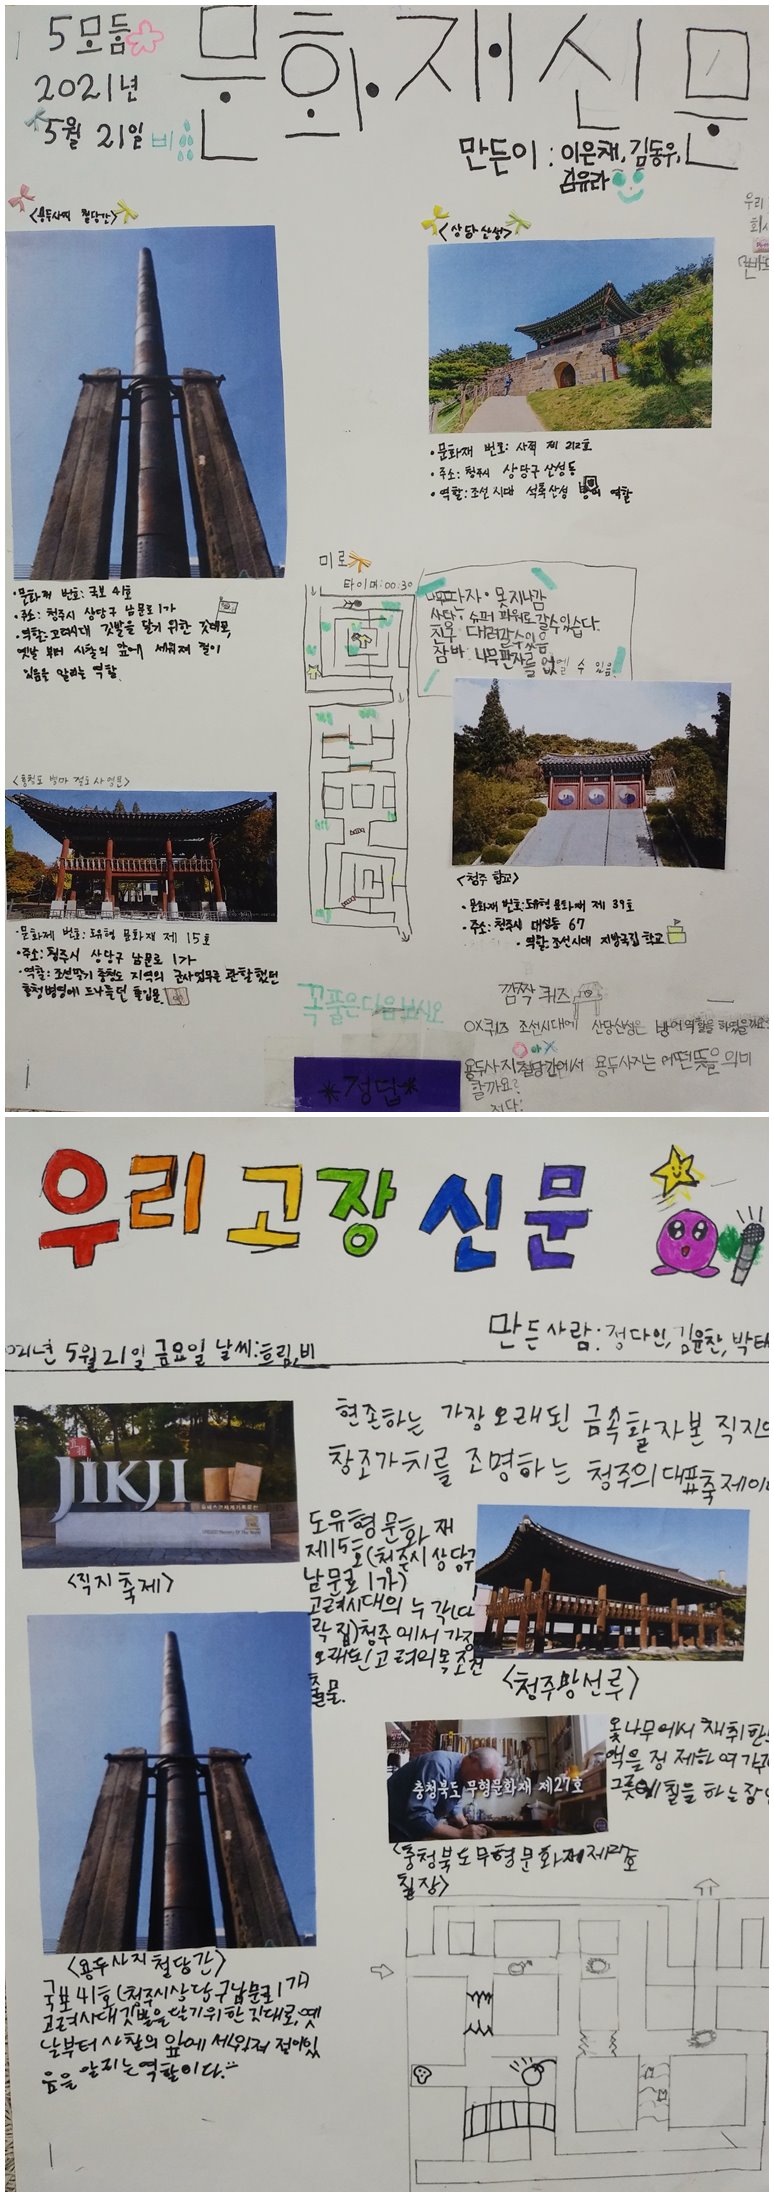 5모둠
2021년
5월 21일 비
문화재신문
만든이 : 이은채, 김동우,
김유라
<용두사지 철당간>
<상당산성>
우리
회사
·문화재 번호: 사적 제 212호
·주소: 청주시 상당구 산성동
·역할: 조선시대 석축산성 방어 역할
·문화재 번호: 국보 41호
·주소: 청주시 상당구 남문로 1가
·역할: 고려시대 깃발을 달기 위한 깃대로,
옛날 부터 사찰의 앞에 세워져 절이
있음을 알리는 역할.
미로
타이머:00:30
나무판자: 못지나감
사탕: 슈퍼 파워도 갈수있습다.
친구: 데려갈수있음
잠바: 나무판자를 없엘 수 있음.
<충청도 병마 절도사영문>
·문화제 번호: 도유형 문화재 제 15호
·주소: 청주시 상당구 남문로 1가
·역할: 조선말기 충청도 지역의 군사업무를 관할했던
충청병영에 드나들던 출입문
<청주 향교>
·문화재 번호: 도유형 문화재 제 39호
·주소: 청주시 대성동 67
·역할: 조선시대 지방국립 학교
꼭 풀은다음 보시오
*정답*
깜짝 퀴즈
OX퀴즈 조선시대에 상당산성은 방어역할을 하였을까요?
O or X
용두사지철당간에서 용두사지는 어떤뜻을 의미
할까요?
정답:
우리고장신문
2021년 5월 21일 금요일 날씨:흐림,비
만든사람: 정다인, 김윤찬, 박태
JIKJI
UNESCO Memory Of The World
<직지축제>
현존하는 가장 오래된 금속활자본 직지의
창조가치를 조명하는 청주의 대표축제이다
도유형문화재
제15호(청주시 상당구
남문로 1가)
고려시대의 누각(다
락집)청주에서 가장
오래된 고려의 목조건
출물.
<청주망선루>
충청북도 무형문화재 제27호
<충청북도무형문화재제27호
칠장>
옻나무에서 채취한
액을 정제하여 가구
그릇에 칠을 하는 장인
<용두사지철당간>
국보 41호(청주시상당구남문로1가)
고려시대깃발을달기위한깃대로,옛
날부터 사찰의 앞에 세워져 절이있
음을 알리는역할이다.